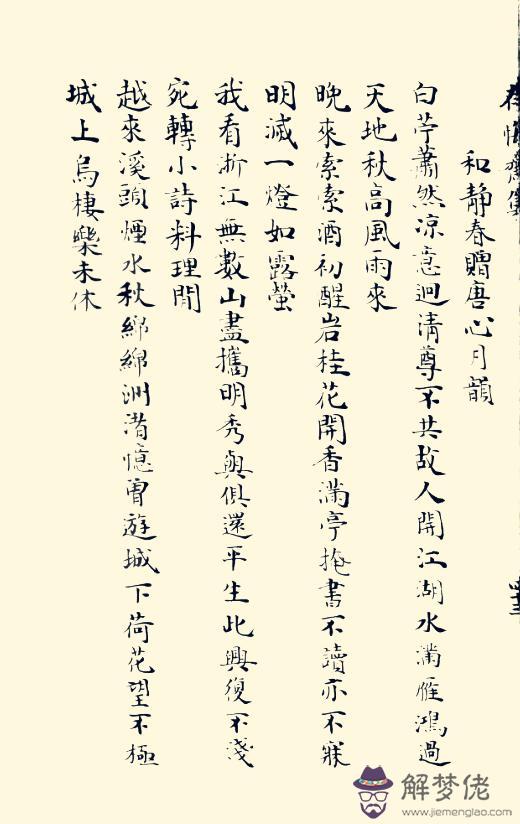 和靜春贈唐心月韻
白苧蕭然凉意迴清尊不共故人開江湖水滿雁鴻過
天地秋高風雨來
晚來索索酒初醒岩桂花開香滿亭掩書不讀亦不寐
明滅一燈如露螢
我看浙江無數山盡攜明秀與俱還平生此興復不淺
宛轉小詩料理閒
越來溪頭煙水秋綿綿洲渚憶曾遊城下荷花望不極
城上烏棲樂未休
解梦佬
www.jiemenglao.com